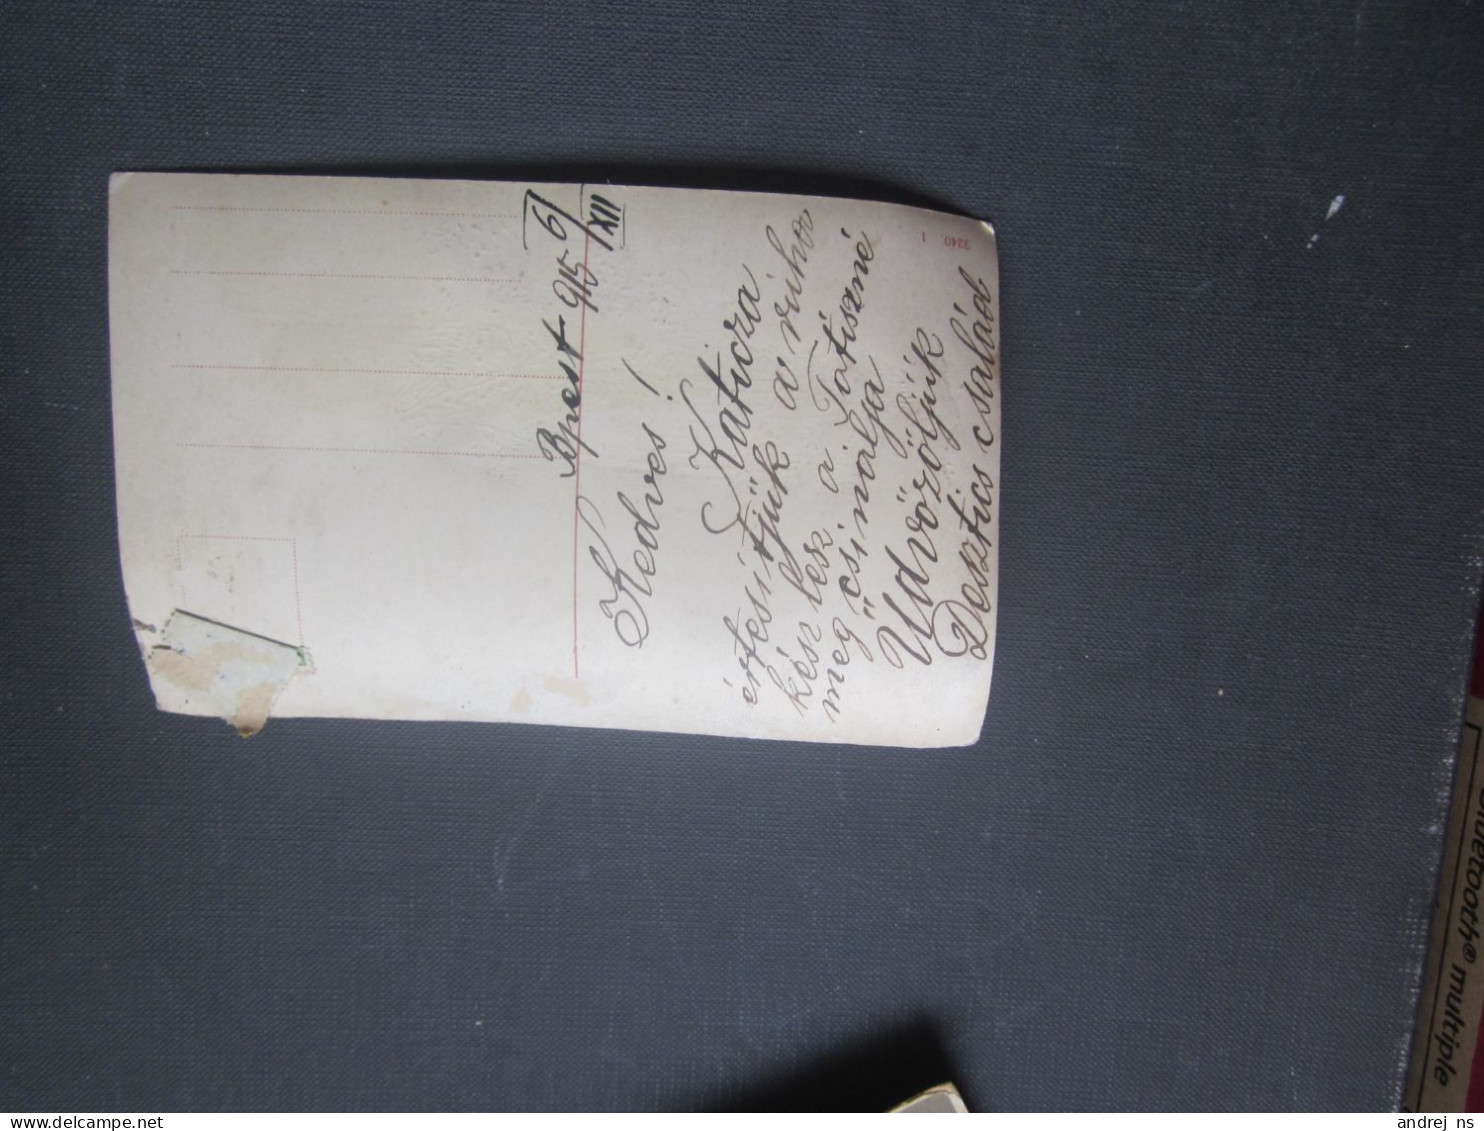 Bpest 915 6/XII
Kedves!
Katicza
értesitjük a ruha
kész lesz a Totiszné
meg csinálja
Üdvözöljük
Desztics család
3240 1
Bluetooth® multiple
delcampe.net
andrej_ns